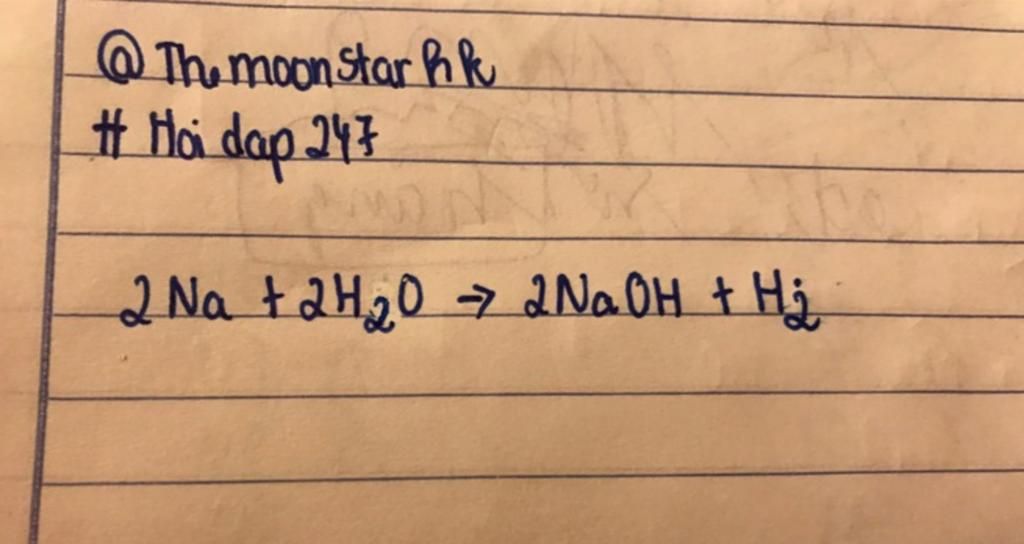 @ Themoonstarhk
# Hoi dap 247
2Na + 2H₂O → 2NaOH + H₂